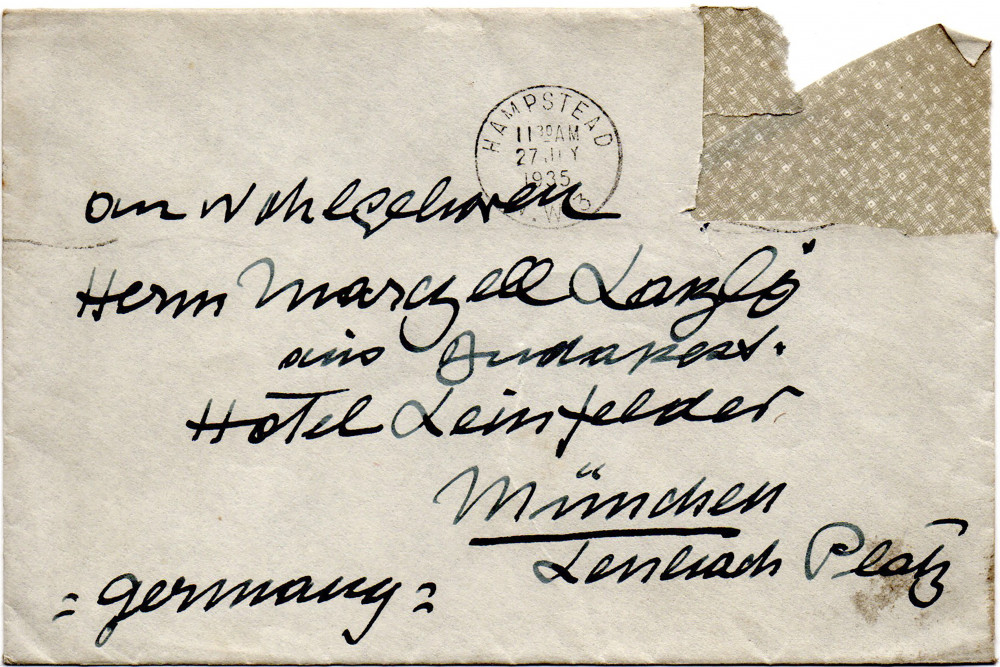 HAMPSTEAD
11 30 AM
27 JLY
1935
N.W.3
an Wohlgeboren
Herrn Marczell László
aus Budapest.
Hotel Leinfelder
München
Lenbach Platz
= Germany =